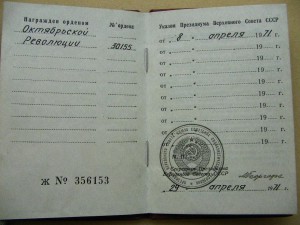 Награжден орденом
№ ордена
Октябрьской
Революции
30155
Ж № 356153
Указом Президиума Верховного Совета СССР
от 8 апреля 1971 г.
от 19 г.
от 19 г.
от 19 г.
от 19 г.
от 19 г.
от 19 г.
от 19 г.
от 19 г.
М. П.
Секретарь Президиума
Верховного Совета СССР
29 апреля 1971 г.